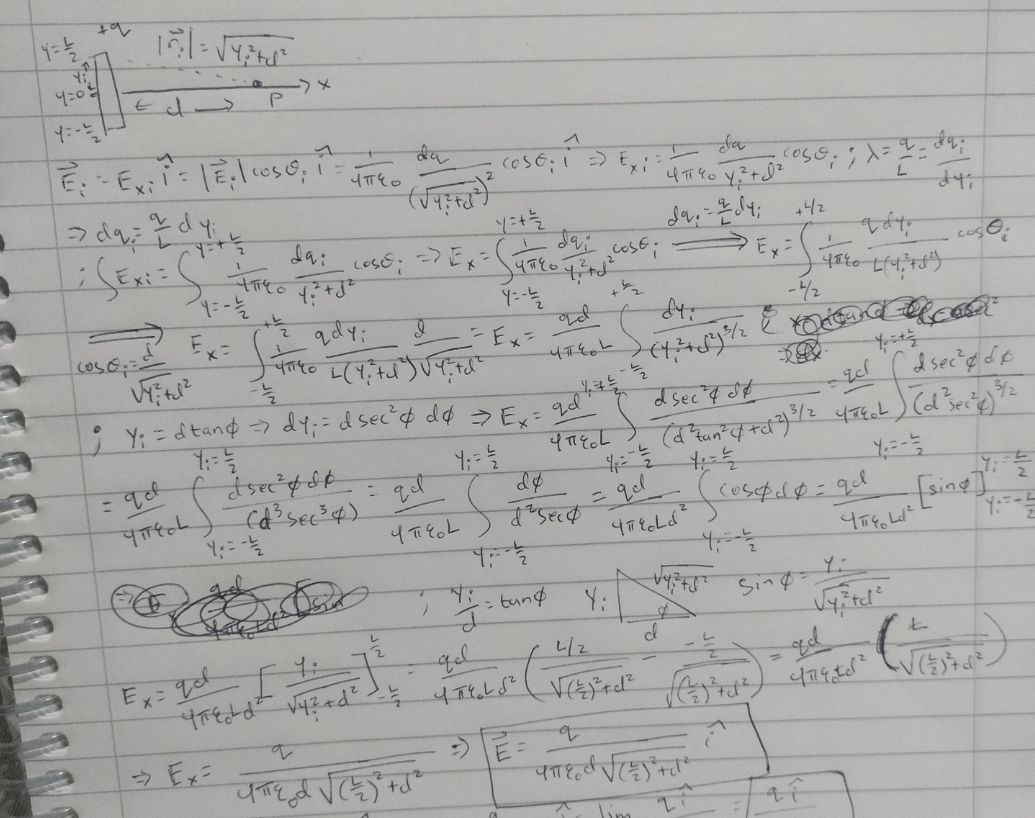 y=L/2 +q |r⃗ᵢ| = √(yᵢ²+d²)
yᵢ
y=0 ← d → P → x
y=-L/2
E⃗ᵢ = Eₓᵢ î = |E⃗ᵢ| cosθᵢ î = 1/(4πε₀) dq/(√(yᵢ²+d²))² cosθᵢ î ⇒ Eₓᵢ = 1/(4πε₀) dq/(yᵢ²+d²) cosθᵢ ; λ = q/L = dqᵢ/dyᵢ
⇒ dqᵢ = q/L dyᵢ
; ∫Eₓᵢ = ∫_{y=-L/2}^{y=+L/2} 1/(4πε₀) dqᵢ/(yᵢ²+d²) cosθᵢ ⇒ Eₓ = ∫_{y=-L/2}^{y=+L/2} 1/(4πε₀) dqᵢ/(yᵢ²+d²) cosθᵢ ⟹(dqᵢ = q/L dyᵢ) Eₓ = ∫_{-L/2}^{+L/2} 1/(4πε₀) q dyᵢ/(L(yᵢ²+d²)) cosθᵢ
⟹(cosθᵢ = d/√(yᵢ²+d²)) Eₓ = ∫_{-L/2}^{+L/2} 1/(4πε₀) q dyᵢ/(L(yᵢ²+d²)) d/√(yᵢ²+d²) = Eₓ = qd/(4πε₀L) ∫_{-L/2}^{+L/2} dyᵢ/(yᵢ²+d²)^{3/2}
; yᵢ = d tanφ ⇒ dyᵢ = d sec²φ dφ ⇒ Eₓ = qd/(4πε₀L) ∫_{yᵢ=-L/2}^{yᵢ=+L/2} d sec²φ dφ/(d²tan²φ+d²)^{3/2} = qd/(4πε₀L) ∫_{yᵢ=-L/2}^{yᵢ=+L/2} d sec²φ dφ/(d²sec²φ)^{3/2}
= qd/(4πε₀L) ∫_{yᵢ=-L/2}^{yᵢ=L/2} d sec²φ dφ/(d³sec³φ) = qd/(4πε₀L) ∫_{yᵢ=-L/2}^{yᵢ=L/2} dφ/(d²secφ) = qd/(4πε₀Ld²) ∫_{yᵢ=-L/2}^{yᵢ=L/2} cosφ dφ = qd/(4πε₀Ld²) [sinφ]_{yᵢ=-L/2}^{yᵢ=L/2}
; yᵢ/d = tanφ yᵢ √(yᵢ²+d²) φ d sinφ = yᵢ/√(yᵢ²+d²)
Eₓ = qd/(4πε₀Ld²) [yᵢ/√(yᵢ²+d²)]_{-L/2}^{L/2} = qd/(4πε₀Ld²) (L/2/√((L/2)²+d²) - -L/2/√((L/2)²+d²)) = qd/(4πε₀Ld²) (L/√((L/2)²+d²))
⇒ Eₓ = q/(4πε₀d√((L/2)²+d²)) ⇒ E⃗ = q/(4πε₀d√((L/2)²+d²)) î
lim q î = q î